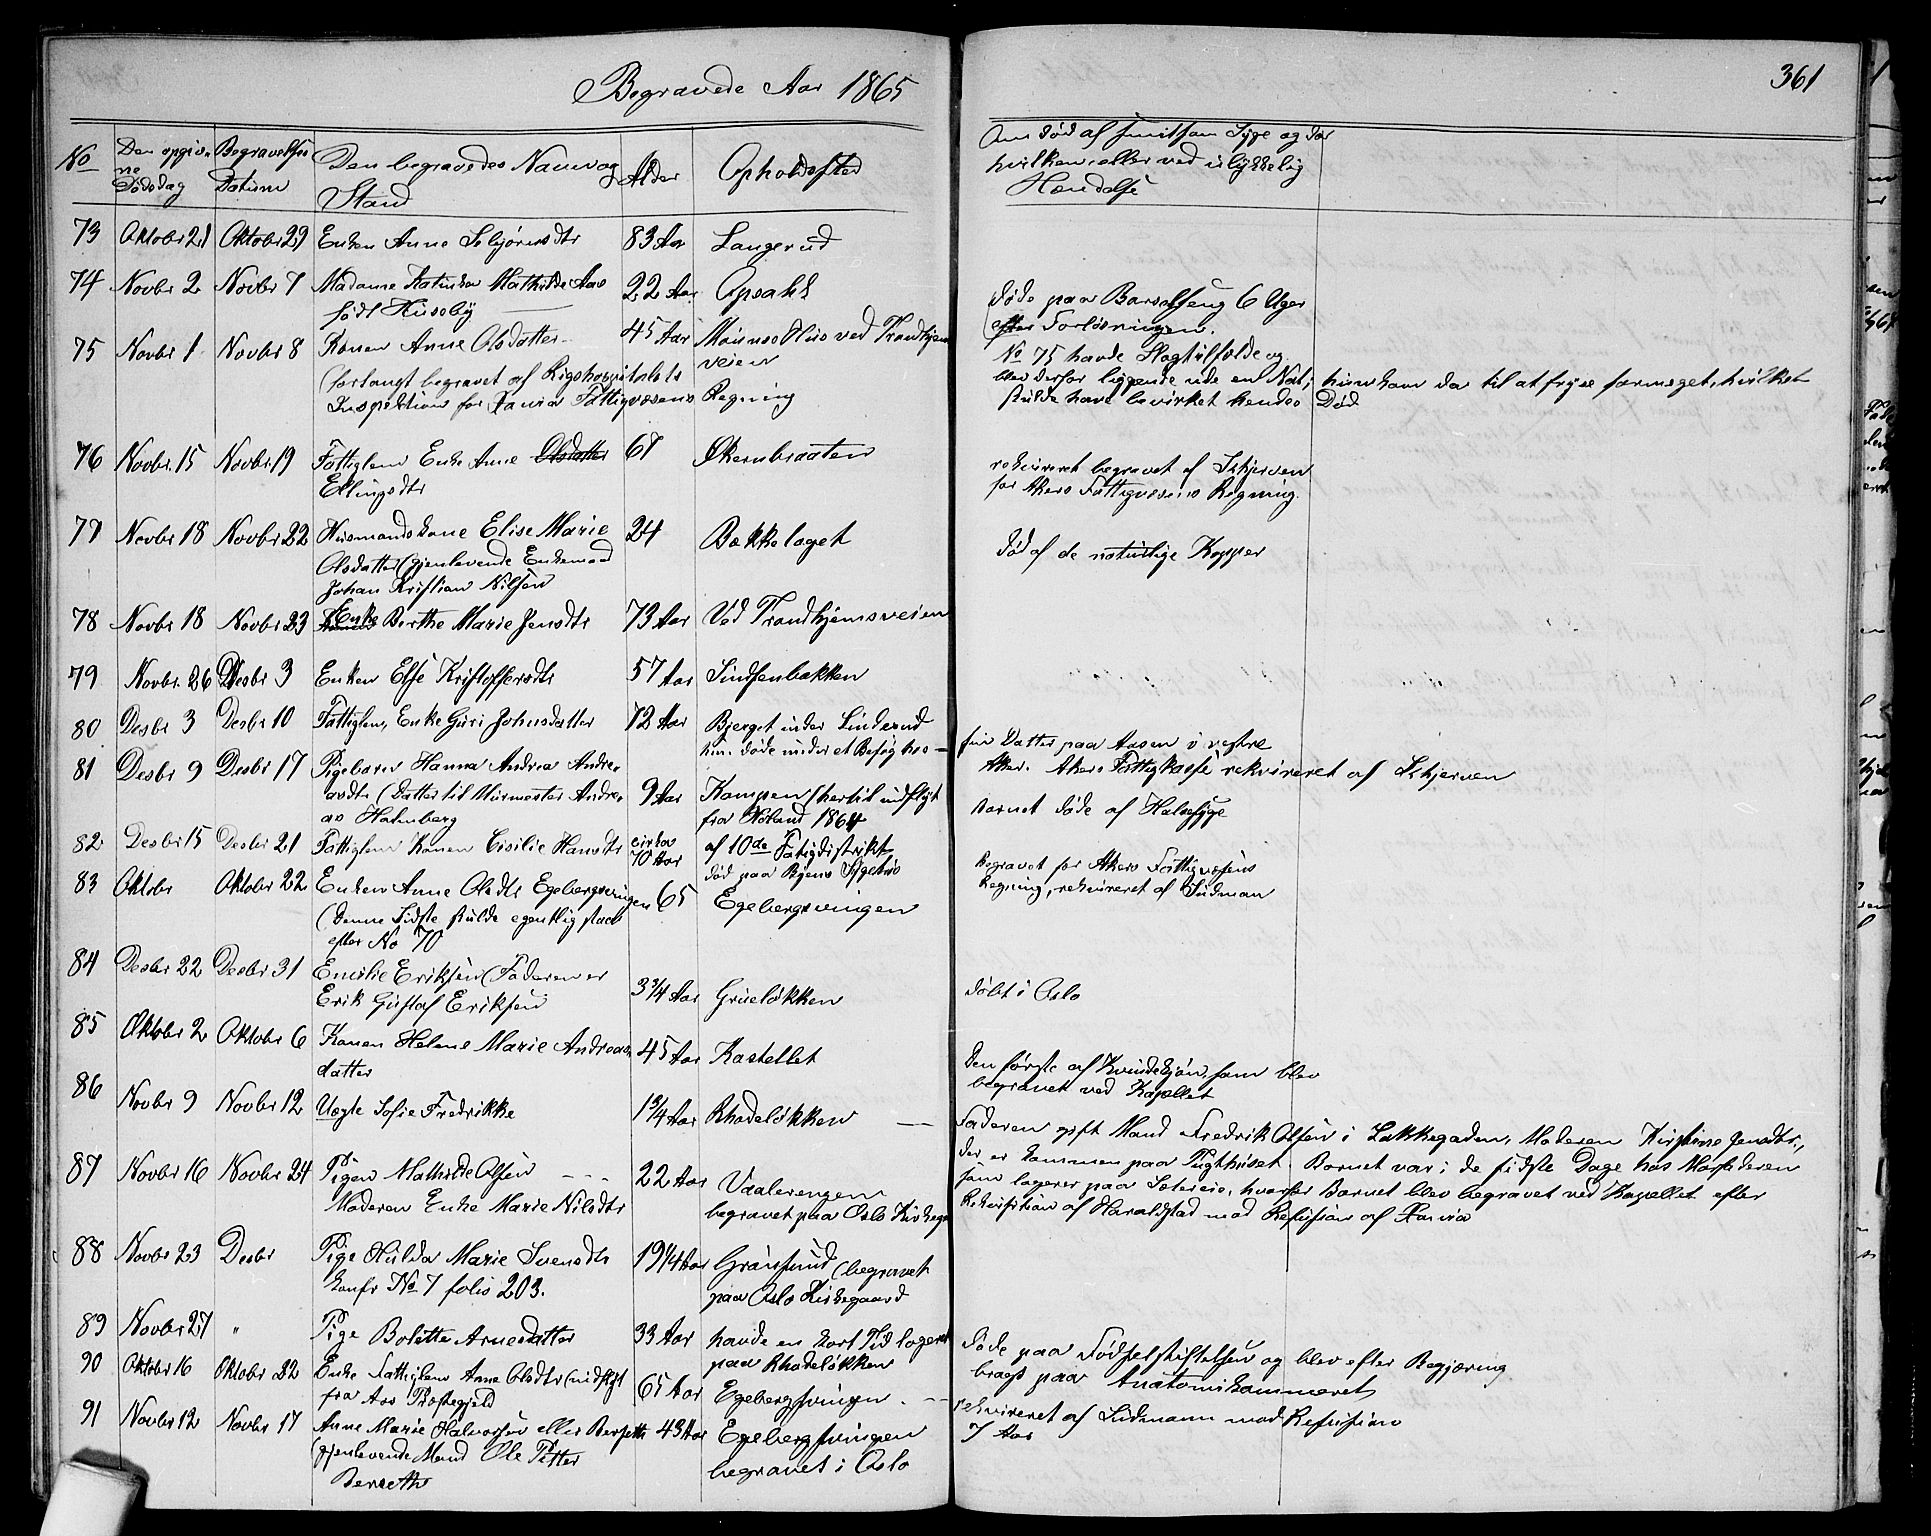 Begravede Aar 1865
361
No
Den opgiv-
ne
Dödsdag
Begravelses
Datum
Den begravedes Navn og
Stand
Alder
Opholdssted
Om död af smitsom Syge og da
hvilken eller ved ulykkelig
Hændelse
73 Oktobr 21 Oktobr 29 Enken Anne Asbjörnsdtr 83 Aar Langerud
74 Novbr 2 Novbr 7 Madame Katinka Mathilde Aas 22 Aar Opsahl
födt Huseby
döde paa Barselseng 6 Uger
efter Forlösningen.
75 Novbr 1 Novbr 8 Konen Anne Olsdatter 45 Aar Mounes Hus ved Trondhjems
veien
(forlangt begravet af Rigshospitalets
Inspektion for Fattigvæsens Regning
No 75 havde Slagtilfælde og
blev derfor liggende ude en Nat, hun kom da til at fryse formeget, hvilket
skulde have bevirket hendes Död
76 Novbr. 15 Novbr 19 Fattiglem Enke Anne Olsdatter 67 Økernbraaten
Ellingsdtr
rekvireret begravet af Skjerven
for Akers Fattigvæsens Regning.
77 Novbr 18 Novbr 22 Husmandskone Elise Marie 24 Bækkelaget
Olsdatter (gjenlevende Enkemand
Johan Kristian Nilsen
död af de naturlige Kopper
78 Novbr 18 Novbr 23 Enke Berthe Marie Jensdtr 73 Aar Ved Trondhjemsveien
79 Novbr. 26 Desbr 3 Enken Else Kristoffersdtr 57 Aar Sinsenbakken
80 Desbr 3 Desbr 10 Fattiglem, Enke Guri Johnsdatter 72 Aar Bjerget under Linderud
hun döde under et Besög hos —
sin Datter paa Aasen i vestre
Aker. Akers Fattigkasse rekvireret af Skjerven
81 Desbr 9 Desbr 17 Pigebarn Hanna Andrea Andre-
asdtr (Datter til Murmester Andre- 9 Aar Kampen (hertil indflyt
as Holmberg fra Höland 1864
Barnet döde af Halssyge
82 Desbr 15 Desbr 21 Fattiglem Konen Cisilie Hansdtr cirka
70 Aar
af 10de Fatigdistrikt
död paa Byens Sygehus
Begravet for Akers Fattigvæsens
Regning, rekvireret af Sudman
83 Oktobr Oktobr 22 Enken Anne Olsdtr Egebergsvingen 65 Egebergsvingen
(denne Sidste skulde egentlig staa
efter No 70
84 Desbr 22 Desbr 31 Emilie Eriksen (Faderen er
Erik Gustaf Eriksen 3 3/4 Aar Grueløkken
döbt i Oslo
85 Oktobr 2 Oktobr 6 Konen Helene Marie Andreas- 45 Aar Kastellet
datter
den förste af Kvindekjön, som blev
begravet ved Kapellet
86 Novbr 9 Novbr 12 Uægte Sofie Fredrikke 1 3/4 Aar Rhodeløkken —
Faderen gift Mand Fredrik Olsen i Lakkegaden, Moderen Kirstine Jensdtr,
der er kommen paa Tugthuset. Barnet var i de sidste Dage hos Morfaderen
som logerer paa Sætereie, hvorfor Barnet blev begravet ved Kapellet efter
Rekvisition af Haraldstad med Refusion af
87 Novbr 16 Novbr 24 Pigen Mathilde Olsen 22 Aar Vaalerengen
Moderen Enke Marie Nilsdtr begravet paa Oslo Kirkega
88 Novbr 23 Desbr Pige Hulda Marie Svensdtr 19 1/4 Aar Grönsund (begravet
konfr No 7 folio 203. paa Oslo Kirkegaard
89 Novbr 27 " Pige Bolette Arnesdatter 33 Aar havde en kort Tid logeret
paa Rhodeløkken
Döde paa Födselstiftelsen og blev efter Begjæring
bragt paa Anatomikammeret
90 Oktobr 16 Oktobr 22 Enke Fattiglem Anne Olsdtr (indflyt 65 Aar Egebergsvingen. —
fra Aas Præstegjeld
rekvireret af Sudmann med Refusion
7 Aar
91 Novbr 12 Novbr 17 Anne Marie Halvorsen eller Berseth 43 Aar Egebergsvingen
(gjenlevende Mand Ole Petter begravet i Oslo
Berseth